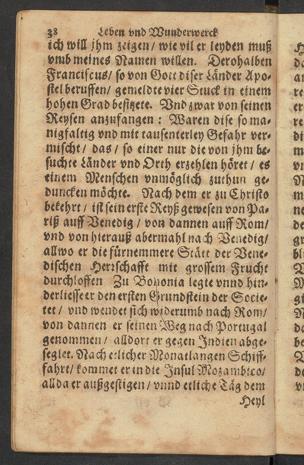 38 Leben vnd Wunderwerck
ich will jhm zeigen / wie vil er leyden muß
vmb meines Namen willen. Derohalben
Franciscus / so von Gott diser Länder Apo-
stel beruffen / gemeldte vier Stuck in einem
hohen Grad besitzete. Vnd zwar von seinen
Reysen anzufangen: Waren dise so ma-
nigfaltig vnd mit tausenterley Gefahr ver-
mischt / das / so einer nur die von jhm be-
suchte Länder vnd Orth erzehlen höret / es
einem Menschen vnmöglich zuthun ge-
duncken möchte. Nach dem er zu Christo
bekehrt / ist sein erste Reyß gewesen von Pa-
riß auff Venedig / von dannen auff Rom /
vnd von hierauß abermahl nach Venedig /
allwo er die fürnemmere Stätt der Vene-
dischen Herrschafft mit grossem Frucht
durchloffen Zu Bononia legte vnnd hin-
derliesse er den ersten Grundstein der Socie-
tet / vnd wendet sich widerumb nach Rom /
von dannen er seinen Weg nach Portugal
genommen / alldort er gegen Indien abge-
seglet. Nach etlicher Monatlangen Schiff-
fahrt / kommet er in die Insul Mozambico /
allda er außgestigen / vnnd etliche Täg dem
Heyl